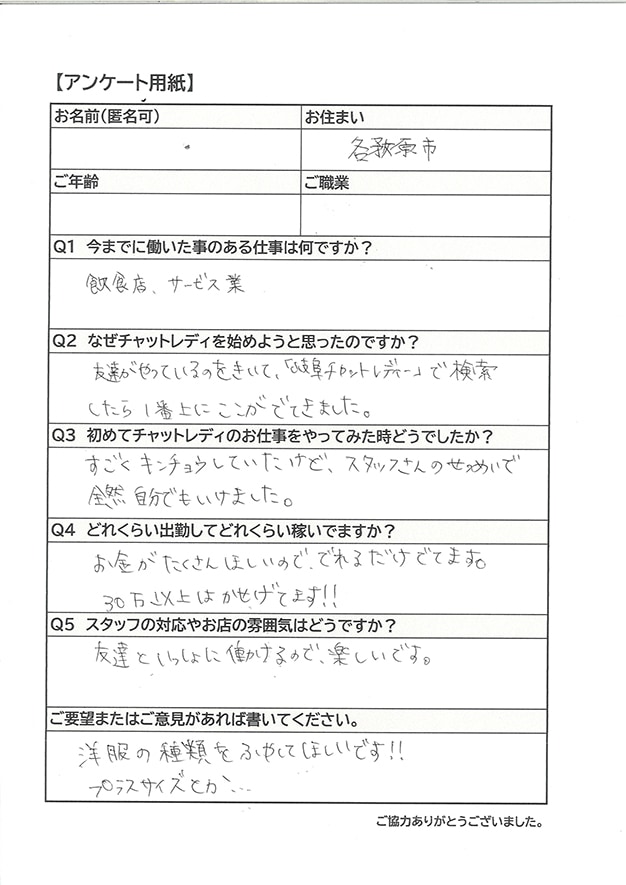 【アンケート用紙】
お名前(匿名可)
お住まい
各務原市
ご年齢
ご職業
Q1 今までに働いた事のある仕事は何ですか？
飲食店、サービス業
Q2 なぜチャットレディを始めようと思ったのですか？
友達がやっているのをきいて、「岐阜チャットレディー」で検索
したら1番上にここがでてきました。
Q3 初めてチャットレディのお仕事をやってみた時どうでしたか？
すごくキンチョウしていたけど、スタッフさんのせつめいで
全然自分でもいけました。
Q4 どれくらい出勤してどれくらい稼いでますか？
お金がたくさんほしいので、でれるだけでてます。
30万以上はかせげてます!!
Q5 スタッフの対応やお店の雰囲気はどうですか？
友達といっしょに働けるので、楽しいです。
ご要望またはご意見があれば書いてください。
洋服の種類をふやしてほしいです!!
プラスサイズとか...
ご協力ありがとうございました。